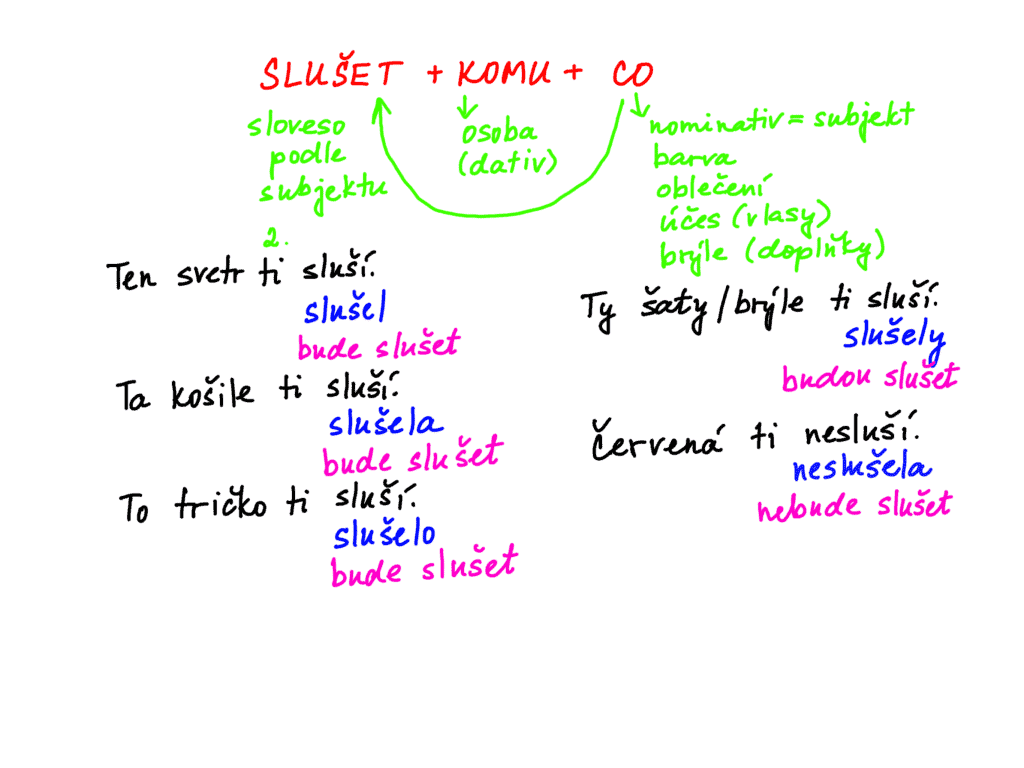 SLUŠET + KOMU + CO
sloveso
podle
subjektu
osoba
(dativ)
nominativ = subjekt
barva
oblečení
účes (vlasy)
brýle (doplňky)
2.
Ten svetr ti sluší.
slušel
bude slušet
Ta košile ti sluší.
slušela
bude slušet
To tričko ti sluší.
slušelo
bude slušet
Ty šaty/brýle ti sluší.
slušely
budou slušet
Červená ti nesluší.
neslušela
nebude slušet